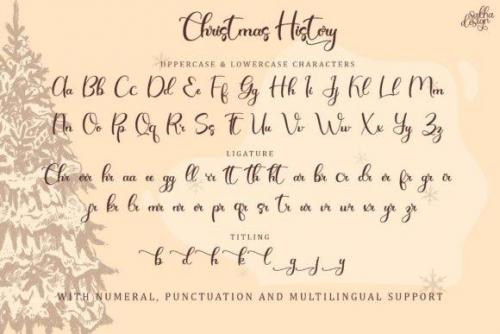 Christmas History
sabha
design
UPPERCASE & LOWERCASE CHARACTERS
Aa Bb Cc Dd Ee Ff Gg Hh Ii Jj Kk Ll Mm
Nn Oo Pp Qq Rr Ss Tt Uu Vv Ww Xx Yy Zz
LIGATURE
Chr er hr aa ee gg ll rr tt th ht ar br cr dr er fr gr ir
jr kr lr mr nr or pr qr sr tr ur vr wr xr yr zr
TITLING
b d h k l g j y
WITH NUMERAL, PUNCTUATION AND MULTILINGUAL SUPPORT